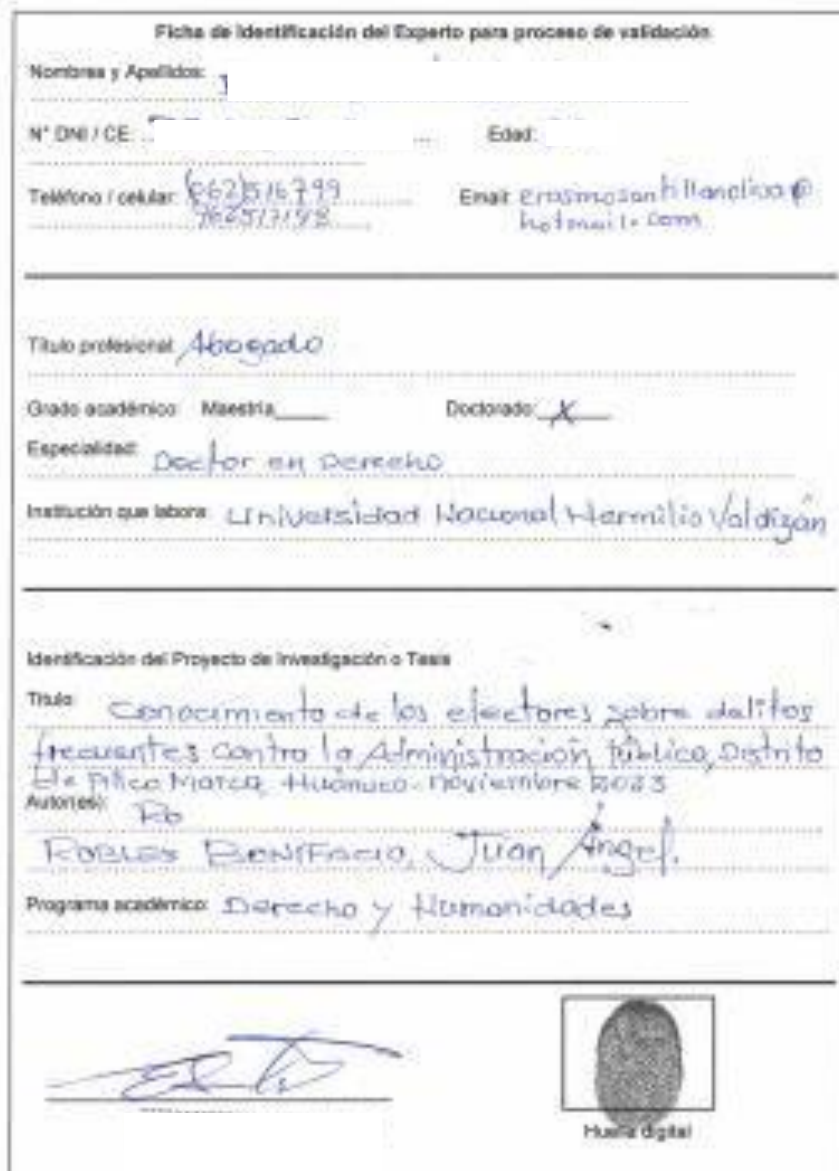 Ficha de Identificación del Experto para proceso de validación
Nombres y Apellidos:
N° DNI / CE: Edad:
Teléfono / celular: (062)516799 Email: erasmosantillanoliva@
hotmail.com
Título profesional: Abogado
Grado académico: Maestría Doctorado: X
Especialidad: Doctor en Derecho
Institución que labora: Universidad Nacional Hermilio Valdizán
Identificación del Proyecto de Investigación o Tesis
Título: Conocimiento de los electores sobre delitos
frecuentes contra la Administración Pública, Distrito
de Pillco Marca, Huánuco - noviembre 2023
Autor(es): Ro
ROBLES BONIFACIO, Juan Ángel.
Programa académico: Derecho y Humanidades
Huella digital